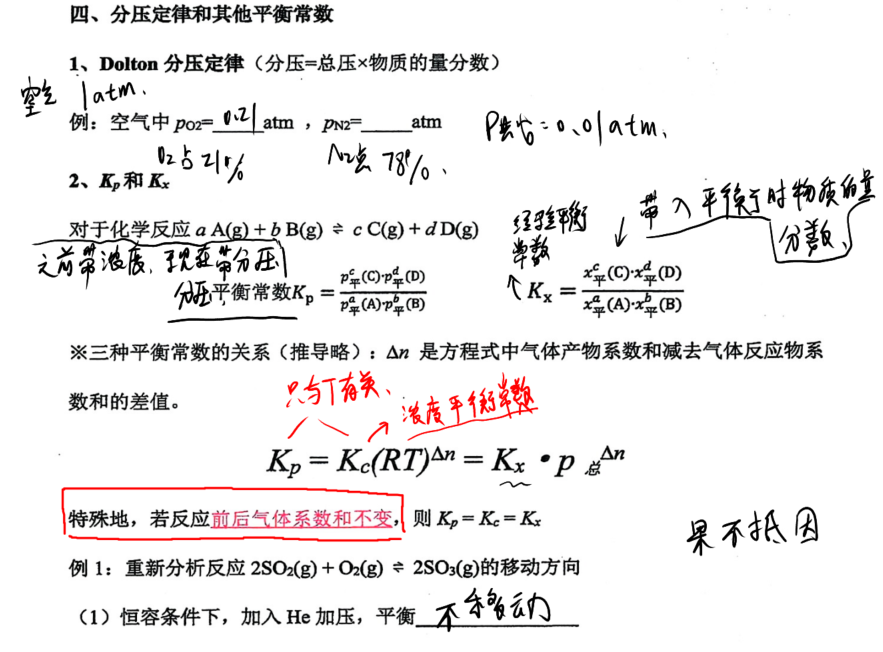 四、分压定律和其他平衡常数
1、Dolton 分压定律（分压=总压×物质的量分数）
空气 1atm.
例：空气中 pO2= 0.21 atm ，pN2=______atm P其他=0.01atm.
O2占21% N2占78%.
2、Kp 和 Kx
带入平衡于时物质的量
分数、
对于化学反应 a A(g) + b B(g) ⇌ c C(g) + d D(g)
经验平衡
常数
之前带浓度，现在带分压
分压平衡常数Kp = p平^c(C)·p平^d(D) / p平^a(A)·p平^b(B) Kx = x平^c(C)·x平^d(D) / x平^a(A)·x平^b(B)
※三种平衡常数的关系（推导略）：Δn 是方程式中气体产物系数和减去气体反应物系
数和的差值。
只与T有关、
浓度平衡常数
Kp = Kc(RT)^Δn = Kx • p总^Δn
特殊地，若反应前后气体系数和不变，则 Kp = Kc = Kx
果不抵因
例 1：重新分析反应 2SO2(g) + O2(g) ⇌ 2SO3(g)的移动方向
（1）恒容条件下，加入 He 加压，平衡 不移动